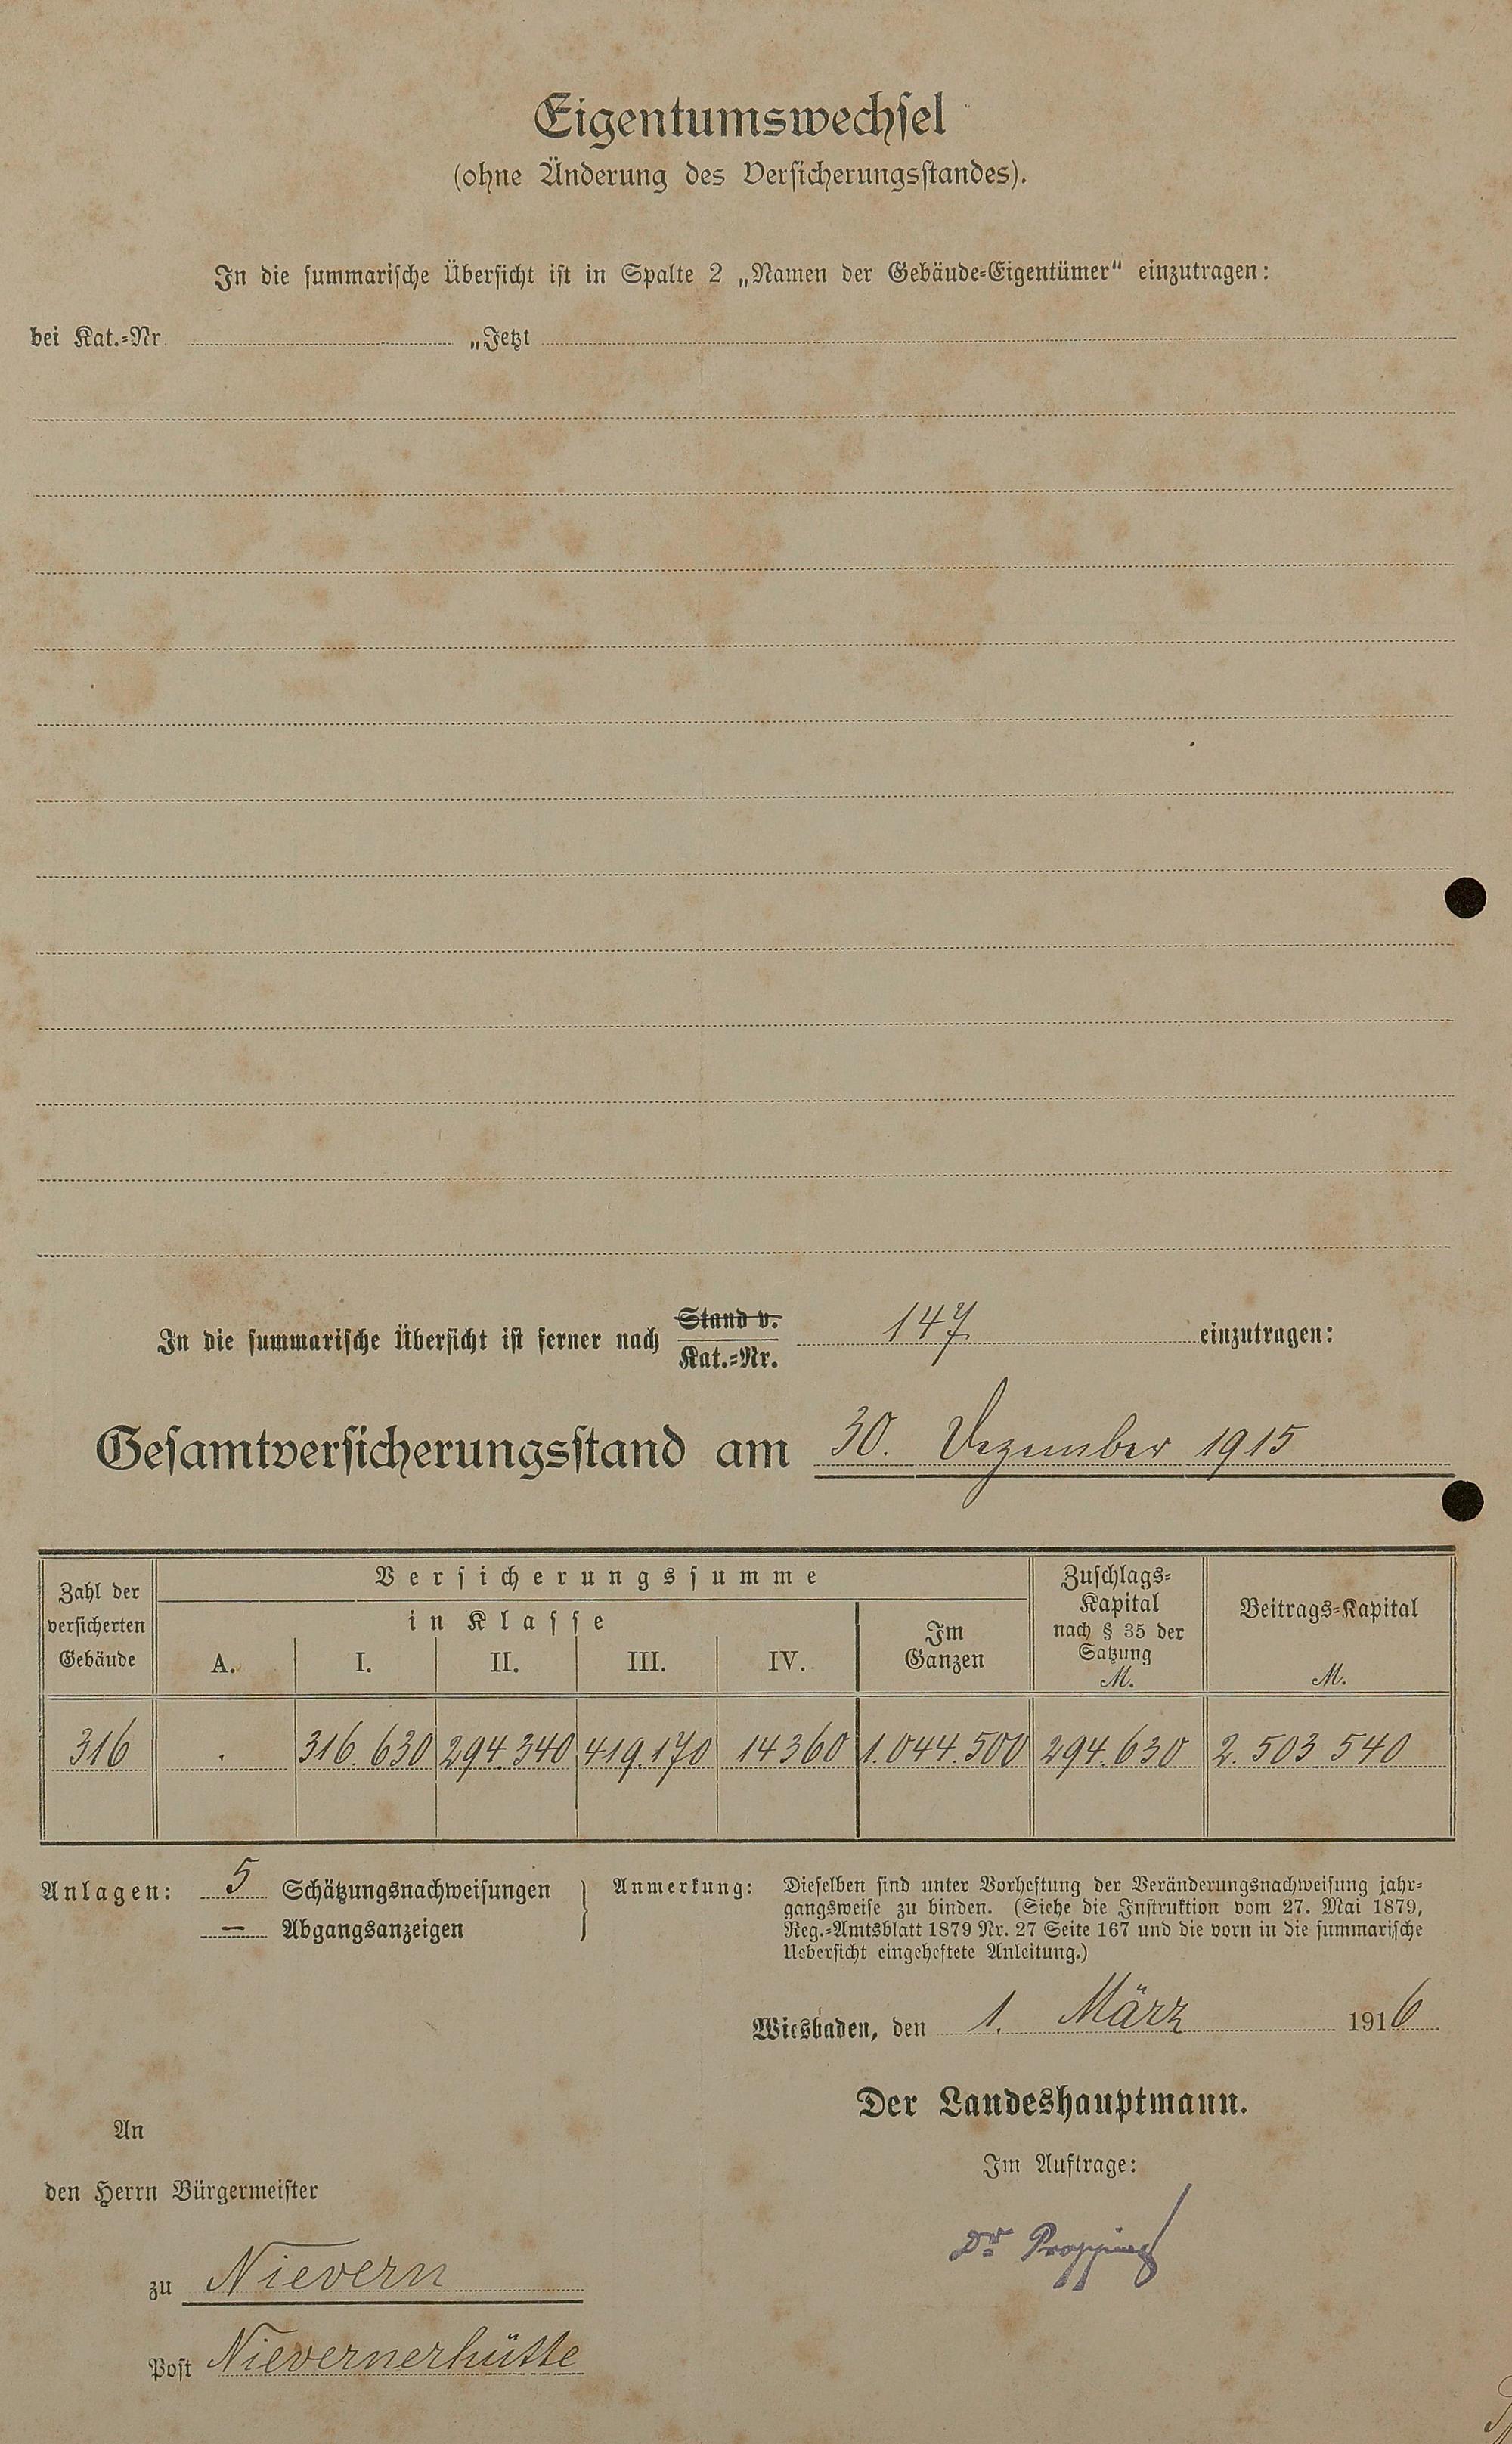 Eigentumswechsel
(ohne Änderung des Versicherungsstandes).
In die summarische Übersicht ist in Spalte 2 „Namen der Gebäude-Eigentümer“ einzutragen:
bei Kat.-Nr. „Jetzt
In die summarische Übersicht ist ferner nach Stand v. Kat.-Nr. 147 einzutragen:
Gesamtversicherungsstand am 30. Dezember 1915
Zahl der versicherten Gebäude
Versicherungssumme
in Klasse
A. I. II. III. IV. Im Ganzen
Zuschlags-Kapital nach § 35 der Satzung M.
Beitrags-Kapital M.
316 . 316.630 294.340 419.170 14360 1.044.500 294.630 2.503 540
Anlagen: 5 Schätzungsnachweisungen
— Abgangsanzeigen
Anmerkung: Dieselben sind unter Vorheftung der Veränderungsnachweisung jahr-
gangsweise zu binden. (Siehe die Instruktion vom 27. Mai 1879,
Reg.-Amtsblatt 1879 Nr. 27 Seite 167 und die vorn in die summarische
Uebersicht eingeheftete Anleitung.)
Wiesbaden, den 1. März 1916
Der Landeshauptmann.
Im Auftrage:
Dr Propping
An
den Herrn Bürgermeister
zu Nievern
Post Nievernerhütte